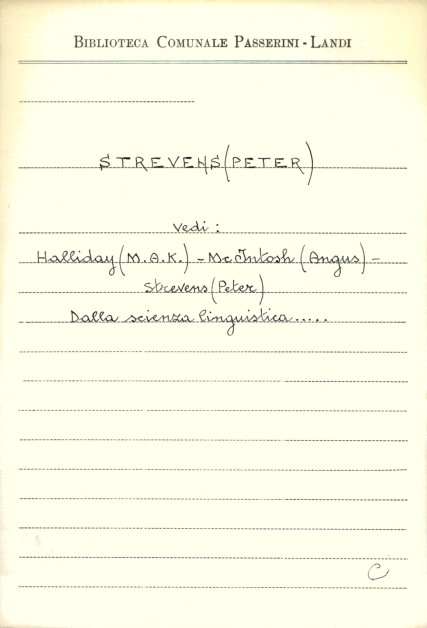 BIBLIOTECA COMUNALE PASSERINI - LANDI
STREVENS (PETER)
vedi :
Halliday (M.A.K.) - McIntosh (Angus) -
Strevens (Peter)
Dalla scienza linguistica.....
C